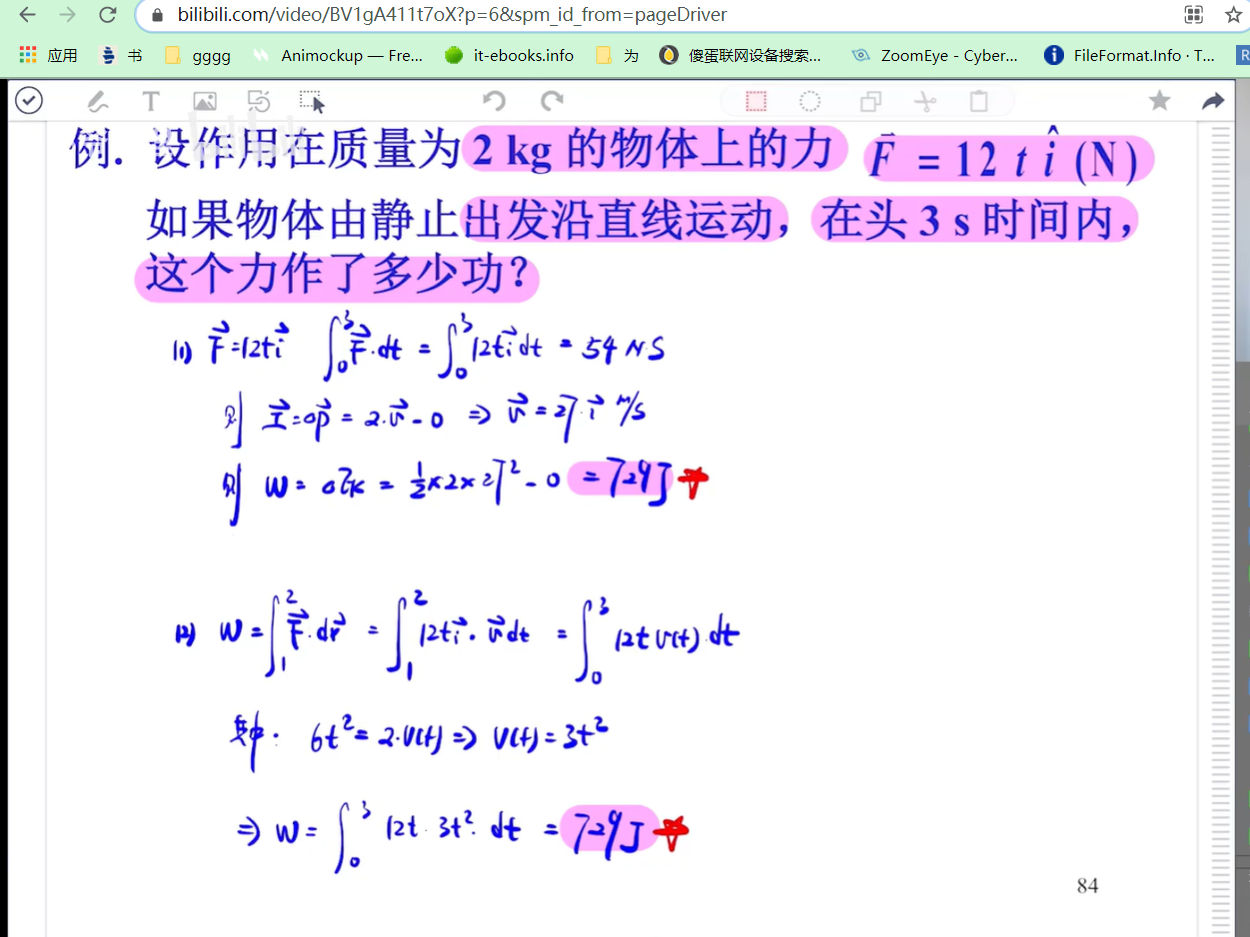 bilibili.com/video/BV1gA411t7oX?p=6&spm_id_from=pageDriver
应用 书 gggg Animockup — Fre... it-ebooks.info 为 傻蛋联网设备搜索... ZoomEye - Cyber... FileFormat.Info · T...
例. 设作用在质量为 2 kg 的物体上的力 F⃗ = 12 t î (N)
如果物体由静止出发沿直线运动，在头 3 s 时间内，
这个力作了多少功?
(1) F⃗=12ti⃗ ∫₀³F⃗·dt = ∫₀³12ti⃗dt = 54 N·S
则 I⃗=△p⃗ = 2·v⃗-0 ⇒ v⃗=27·i⃗ m/s
则 W = △Ek = ½×2×27²-0 =729J
(2) W=∫₁²F⃗·dr⃗ = ∫₁²12ti⃗·v⃗dt = ∫₀³12tv(t)·dt
其中: 6t²=2·v(t) ⇒ v(t)=3t²
⇒ W=∫₀³12t·3t²·dt =729J
84